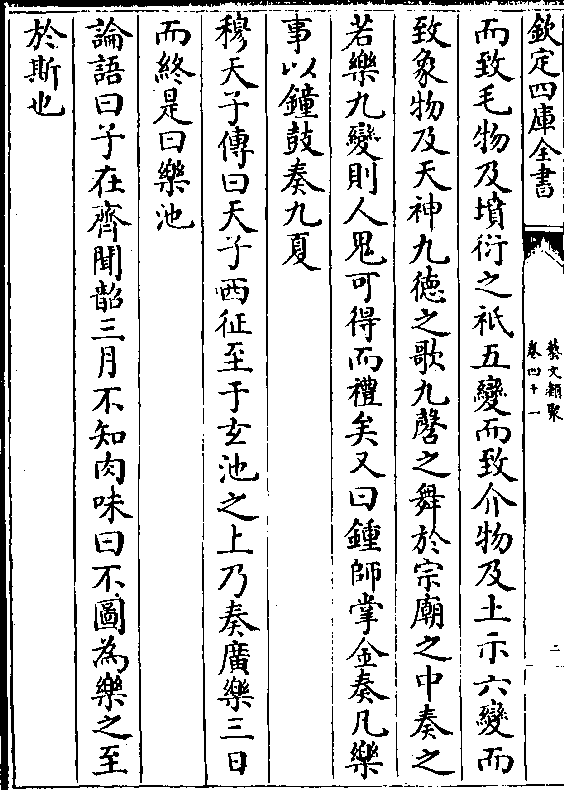 欽定四庫全書
藝文類聚
卷四十一
二
而致毛物及墳衍之祇五變而致介物及土示六變而
致象物及天神九徳之歌九磬之舞於宗廟之中奏之
若樂九變則人鬼可得而禮矣又曰鍾師掌金奏凡樂
事以鐘鼓奏九夏
穆天子傳曰天子西征至于玄池之上乃奏廣樂三日
而終是曰樂池
論語曰子在齊聞韶三月不知肉味曰不圖為樂之至
於斯也